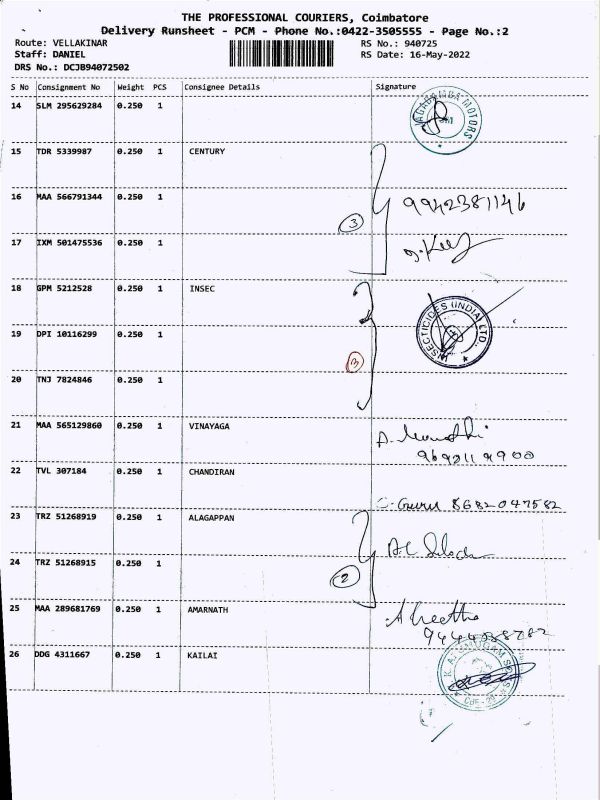 THE PROFESSIONAL COURIERS, Coimbatore
Delivery Runsheet - PCM - Phone No.:0422-3505555 - Page No.:2
Route: VELLAKINAR
RS No.: 940725
Staff: DANIEL
RS Date: 16-May-2022
DRS No.: DCJB94072502
S No Consignment No Weight PCS Consignee Details Signature
14 SLM 295629284 0.250 1
JAGADAMBA MOTORS
15 TDR 5339987 0.250 1 CENTURY
16 MAA 566791344 0.250 1
3 9942381146
17 IXM 501475536 0.250 1
18 GPM 5212528 0.250 1 INSEC
INSECTICIDES (INDIA) LTD.
19 DPI 10116299 0.250 1
3
20 TNJ 7824846 0.250 1
21 MAA 565129860 0.250 1 VINAYAGA
22 TVL 307184 0.250 1 CHANDIRAN
Guru 8682047582
23 TRZ 51268919 0.250 1 ALAGAPPAN
24 TRZ 51268915 0.250 1
2
25 MAA 289681769 0.250 1 AMARNATH
26 DDG 4311667 0.250 1 KAILAI